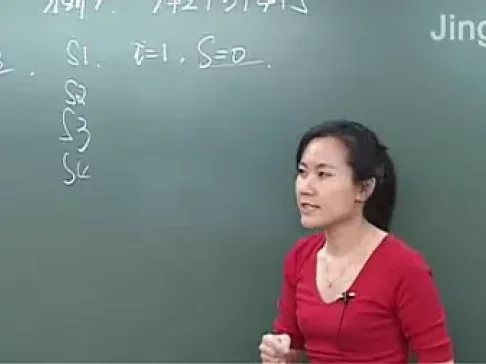 1+2+3+4+5
Jing
S1. i=1, S=0.
S2
S3
S4